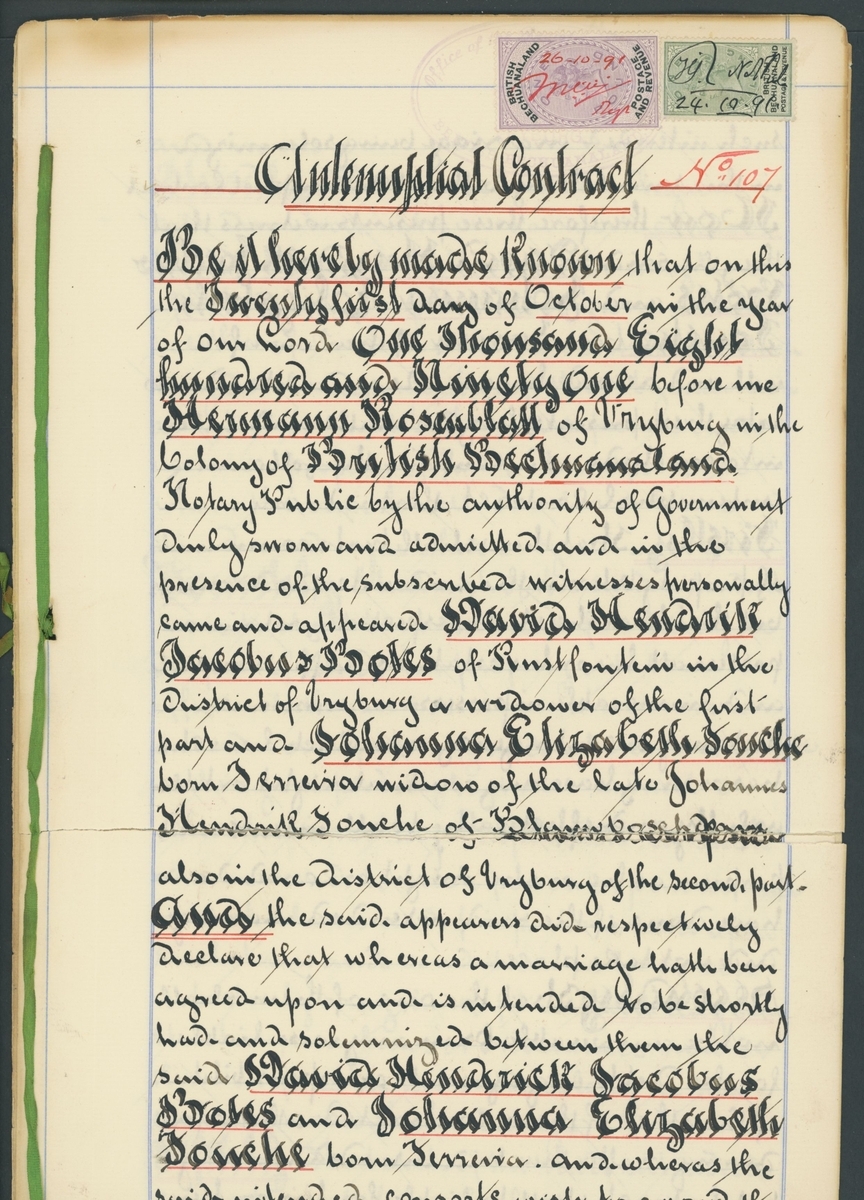 BRITISH BECHUANALAND
POSTAGE AND REVENUE
26-10-91
24.10.91
Antenuptial Contract No. 107
Be it hereby made Known that on this
the Twenty first day of October in the year
of our Lord One Thousand Eight
hundred and Ninety One before me
Hermann Rosenblatt of Vryburg in the
Colony of British Bechuanaland
Notary Public by the authority of Government
duly sworn and admitted and in the
presence of the subscribed witnesses personally
came and appeared David Hendrik
Jacobus Botes of Rustfontein in the
District of Vryburg a widower of the first
part and Johanna Elizabeth Fouche
born Ferreira widow of the late Johannes
Hendrik Fouche of
also in the district of Vryburg of the second part.
And the said appearers did respectively
declare that whereas a marriage hath been
agreed upon and is intended to be shortly
had and solemnized between them the
said David Hendrick Jacobus
Botes and Johanna Elizabeth
Fouche born Ferreira. and wheras the
said intended consorts